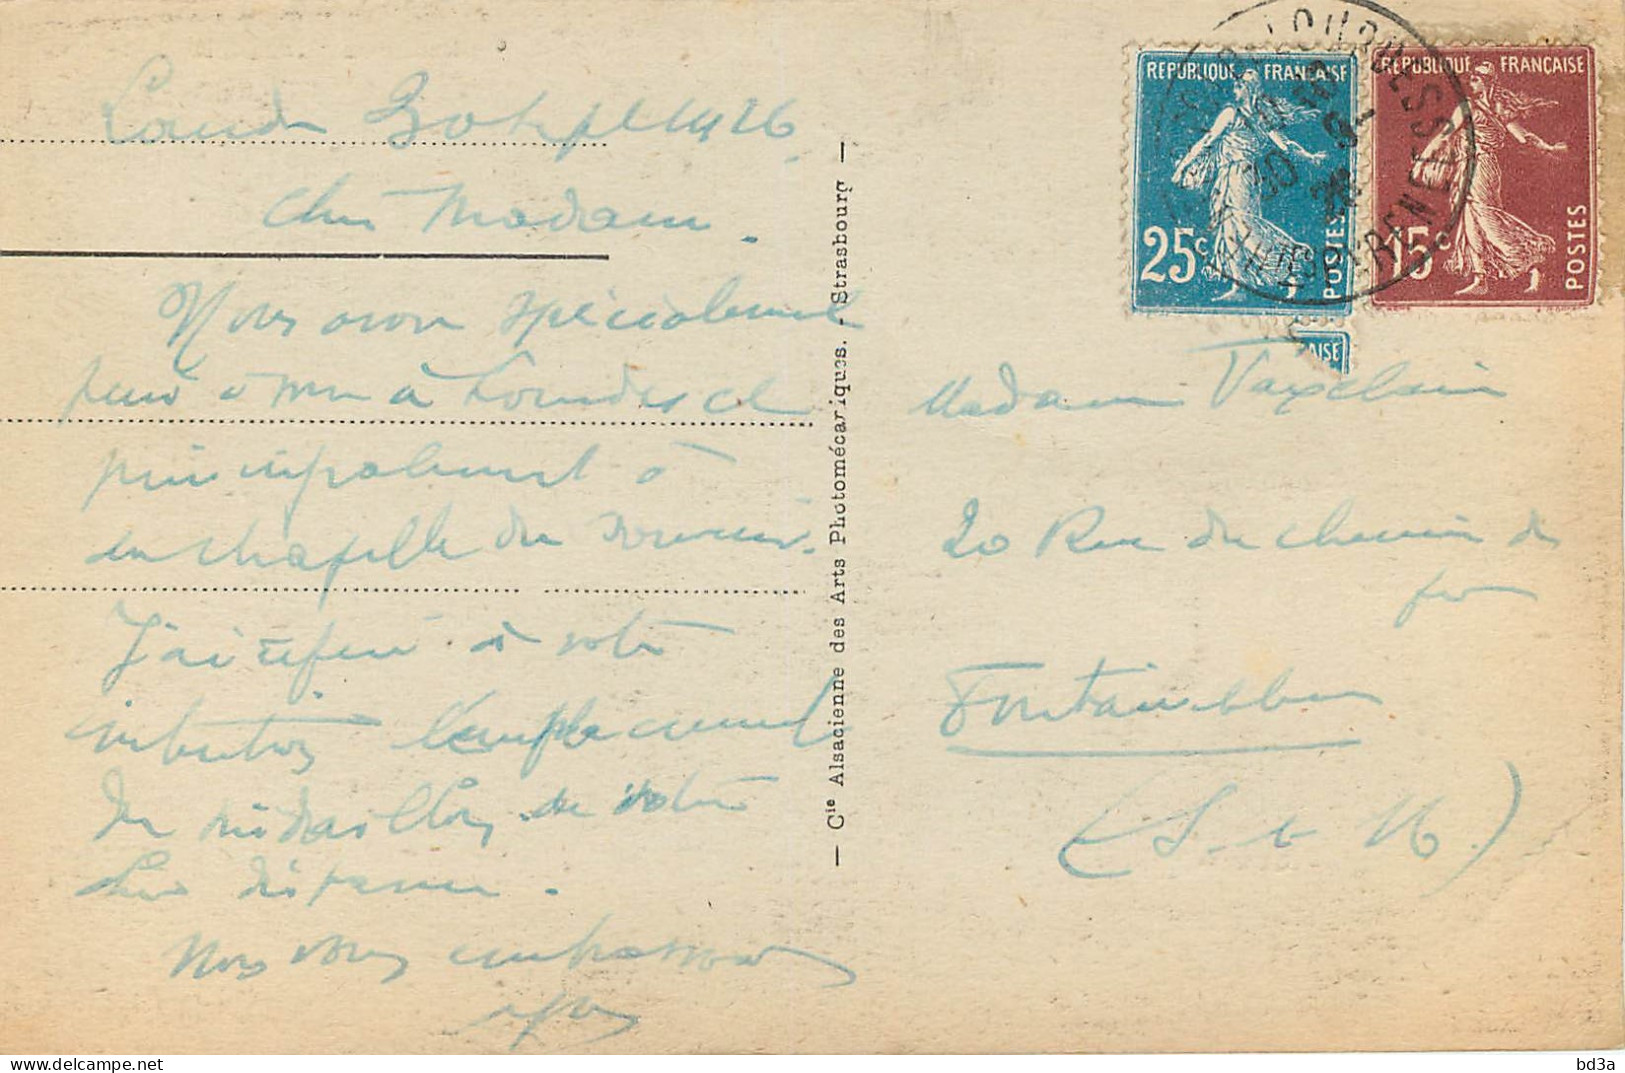 Lourdes 20 Sept 1926
Chère Madame.
Nous avons spécialement
pensé à vous à Lourdes et
principalement à
en chapelle du souvenir.
J'ai repéré à votre
intention l'emplacement
du médaillon de votre
cher
Nous vous embrassons
RÉPUBLIQUE FRANÇAISE
25c POSTES
RÉPUBLIQUE FRANÇAISE
15c POSTES
LOURDES
PYRENEES
AISE
Madame Vauxelaire
20 Rue du Chemin de
fer
Fontainebleau
(S. et M.)
— Cie Alsacienne des Arts Photomécaniques. - Strasbourg —
bd3a